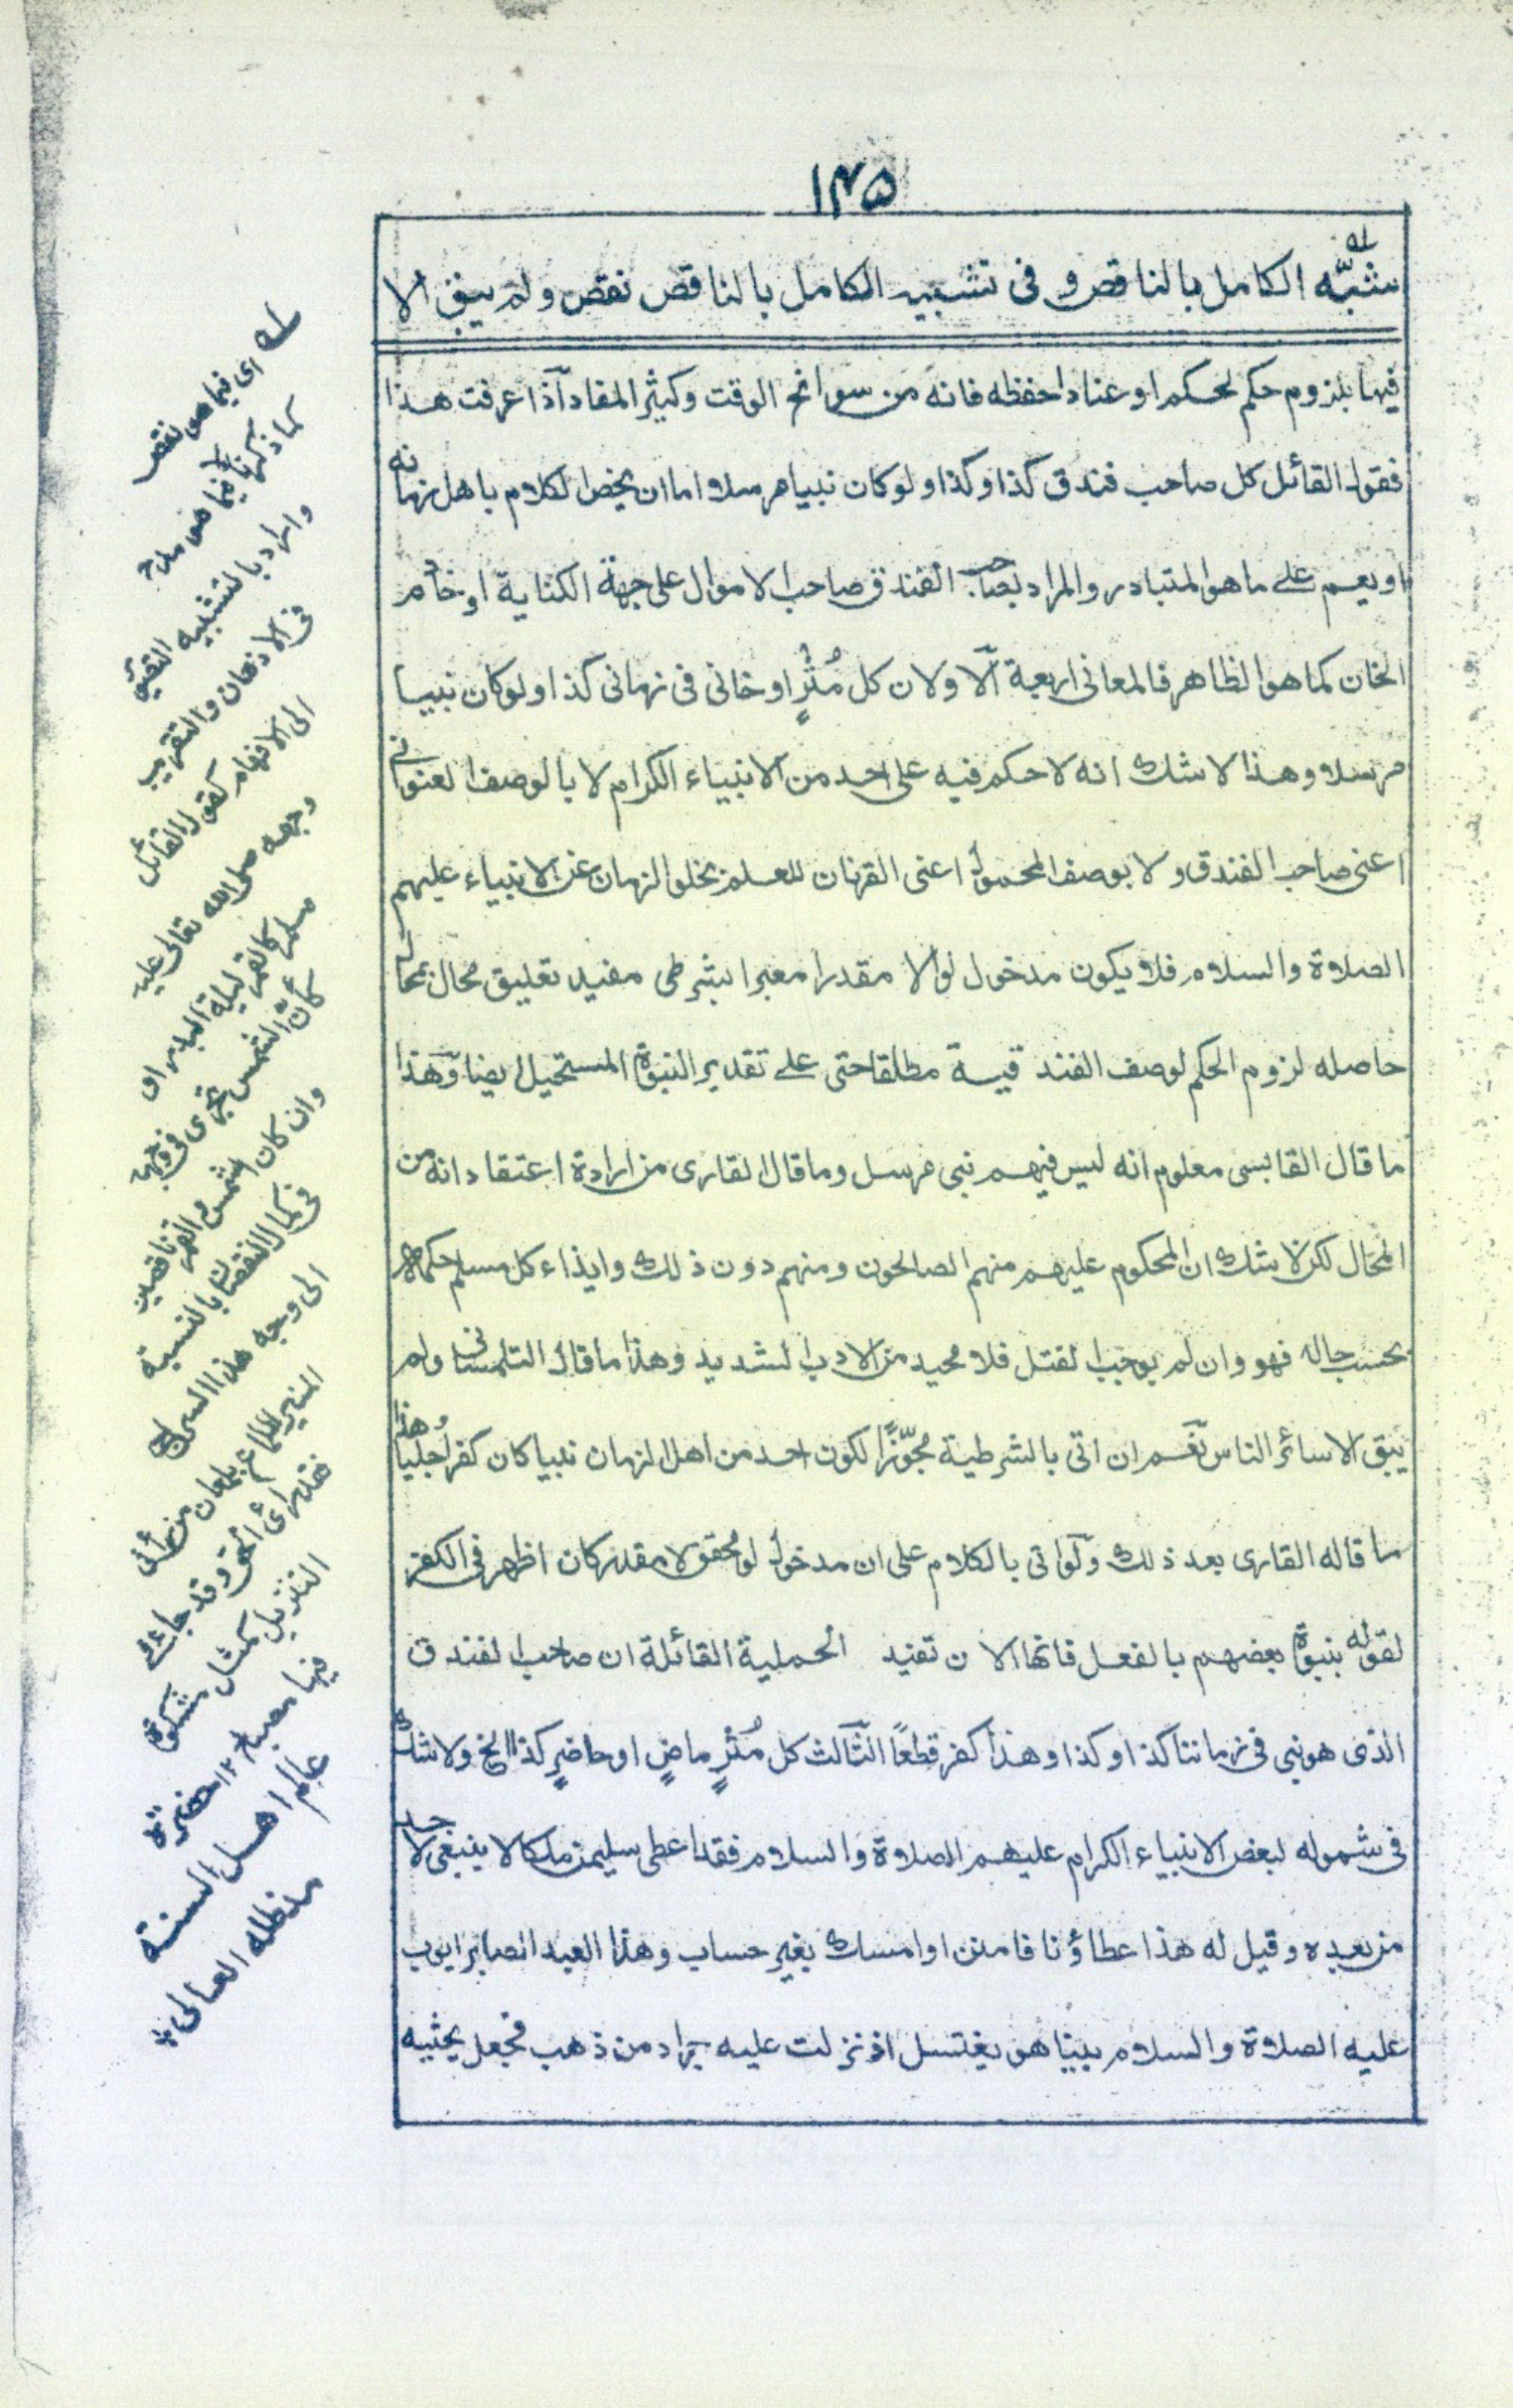 ١٣٥
شبّه الكامل بالناقص و فى تشبيه الكامل بالناقص نقص و لم يبق الا
فيها بلزوم حكم لحكم او عناد احفظه فانه من سوانح الوقت وكثير المفاد آذا عرفت هذا
فقول القائل كل صاحب فندق كذا وكذا ولوكان نبيا مرسلا اما ان يخص الكلام باهل زمانه
او يعم على ما هو المتبادر والمراد بصاحب الفندق صاحب الاموال على جهة الكناية او خادم
الخان كما هو الظاهر فالمعانى اربعة آلاول ان كل مُثْرٍ او خانى فى زمانى كذا ولوكان نبيا
مرسلا وهذا لا شك انه لا حكم فيه على احد من الانبياء الكرام لا بالوصف العنوانى
اعنى صاحب الفندق ولا بوصف المحمول اعنى القرنان للعلم بخلو الزمان عن الانبياء عليهم
الصلاة والسلام فلا يكون مدخول لو الا مقدرا معبرا بشرطى مفيد تعليق محال بمحال
حاصله لزوم الحكم لوصف الفندقية مطلقا حتى على تقدير النبوة المستحيل ايضا وهذا
ما قال القابسى معلوم انه ليس فيهم نبى مرسل وما قال القارى من ارادة اعتقاد انه من
المحال لكن لا شك ان المحكوم عليهم منهم الصالحون ومنهم دون ذلك وايذاء كل مسلم حكمه
بحسب حاله فهو وان لم يوجب القتل فلا محيد من الادب الشديد وهذا ما قال التلمسانى ولم
يبق الا سائر الناس نعم ان اتى بالشرطية مُجوّزًا لكون احد من اهل الزمان نبيا كان كفرا جليا هذا
ما قاله القارى بعد ذلك ولو اتى بالكلام على ان مدخول لو محقق لا مقدر كان اظهر فى الكفر
لقوله بنبوة بعضهم بالفعل فانها الان تفيد الحملية القائلة ان صاحب الفندق
الذى هو نبى فى زماننا كذا وكذا وهذا كفر قطعًا الثّالث كل مُثْرٍ ماضٍ او حاضرٍ كذا الخ ولا شك
فى شموله لبعض الانبياء الكرام عليهم الصلاة والسلام فقد اعطى سليمن ملكا لا ينبغى لاحد
من بعده وقيل له هذا عطاؤنا فامنن او امسك بغير حساب وهذا العبد الصابر ايوب
عليه الصلاة والسلام بينا هو يغتسل اذ نزلت عليه جراد من ذهب فجعل يحثيه
له اى فيما هى نقص
كما ذكرنا لا فيما هى مدح
واراد بالتشبيه التقريب
فى الاذهان والتقرير
الى الافهام كقول القائل
وجهه صلى الله تعالى عليه
وسلم كالقمر ليلة البدر او
كأنّ الشمس تجرى فى وجهه
وان كان الشمس والقمر ناقصين
فى كمال النقصان بالنسبة
الى وجه هذا السراج
المنير
فقد رأى الحق وقد جاء فى
التنزيل كمثل مشكوة
فيها مصباح ١٢ حضرة
عالم اهل السنة
مدظله العالى